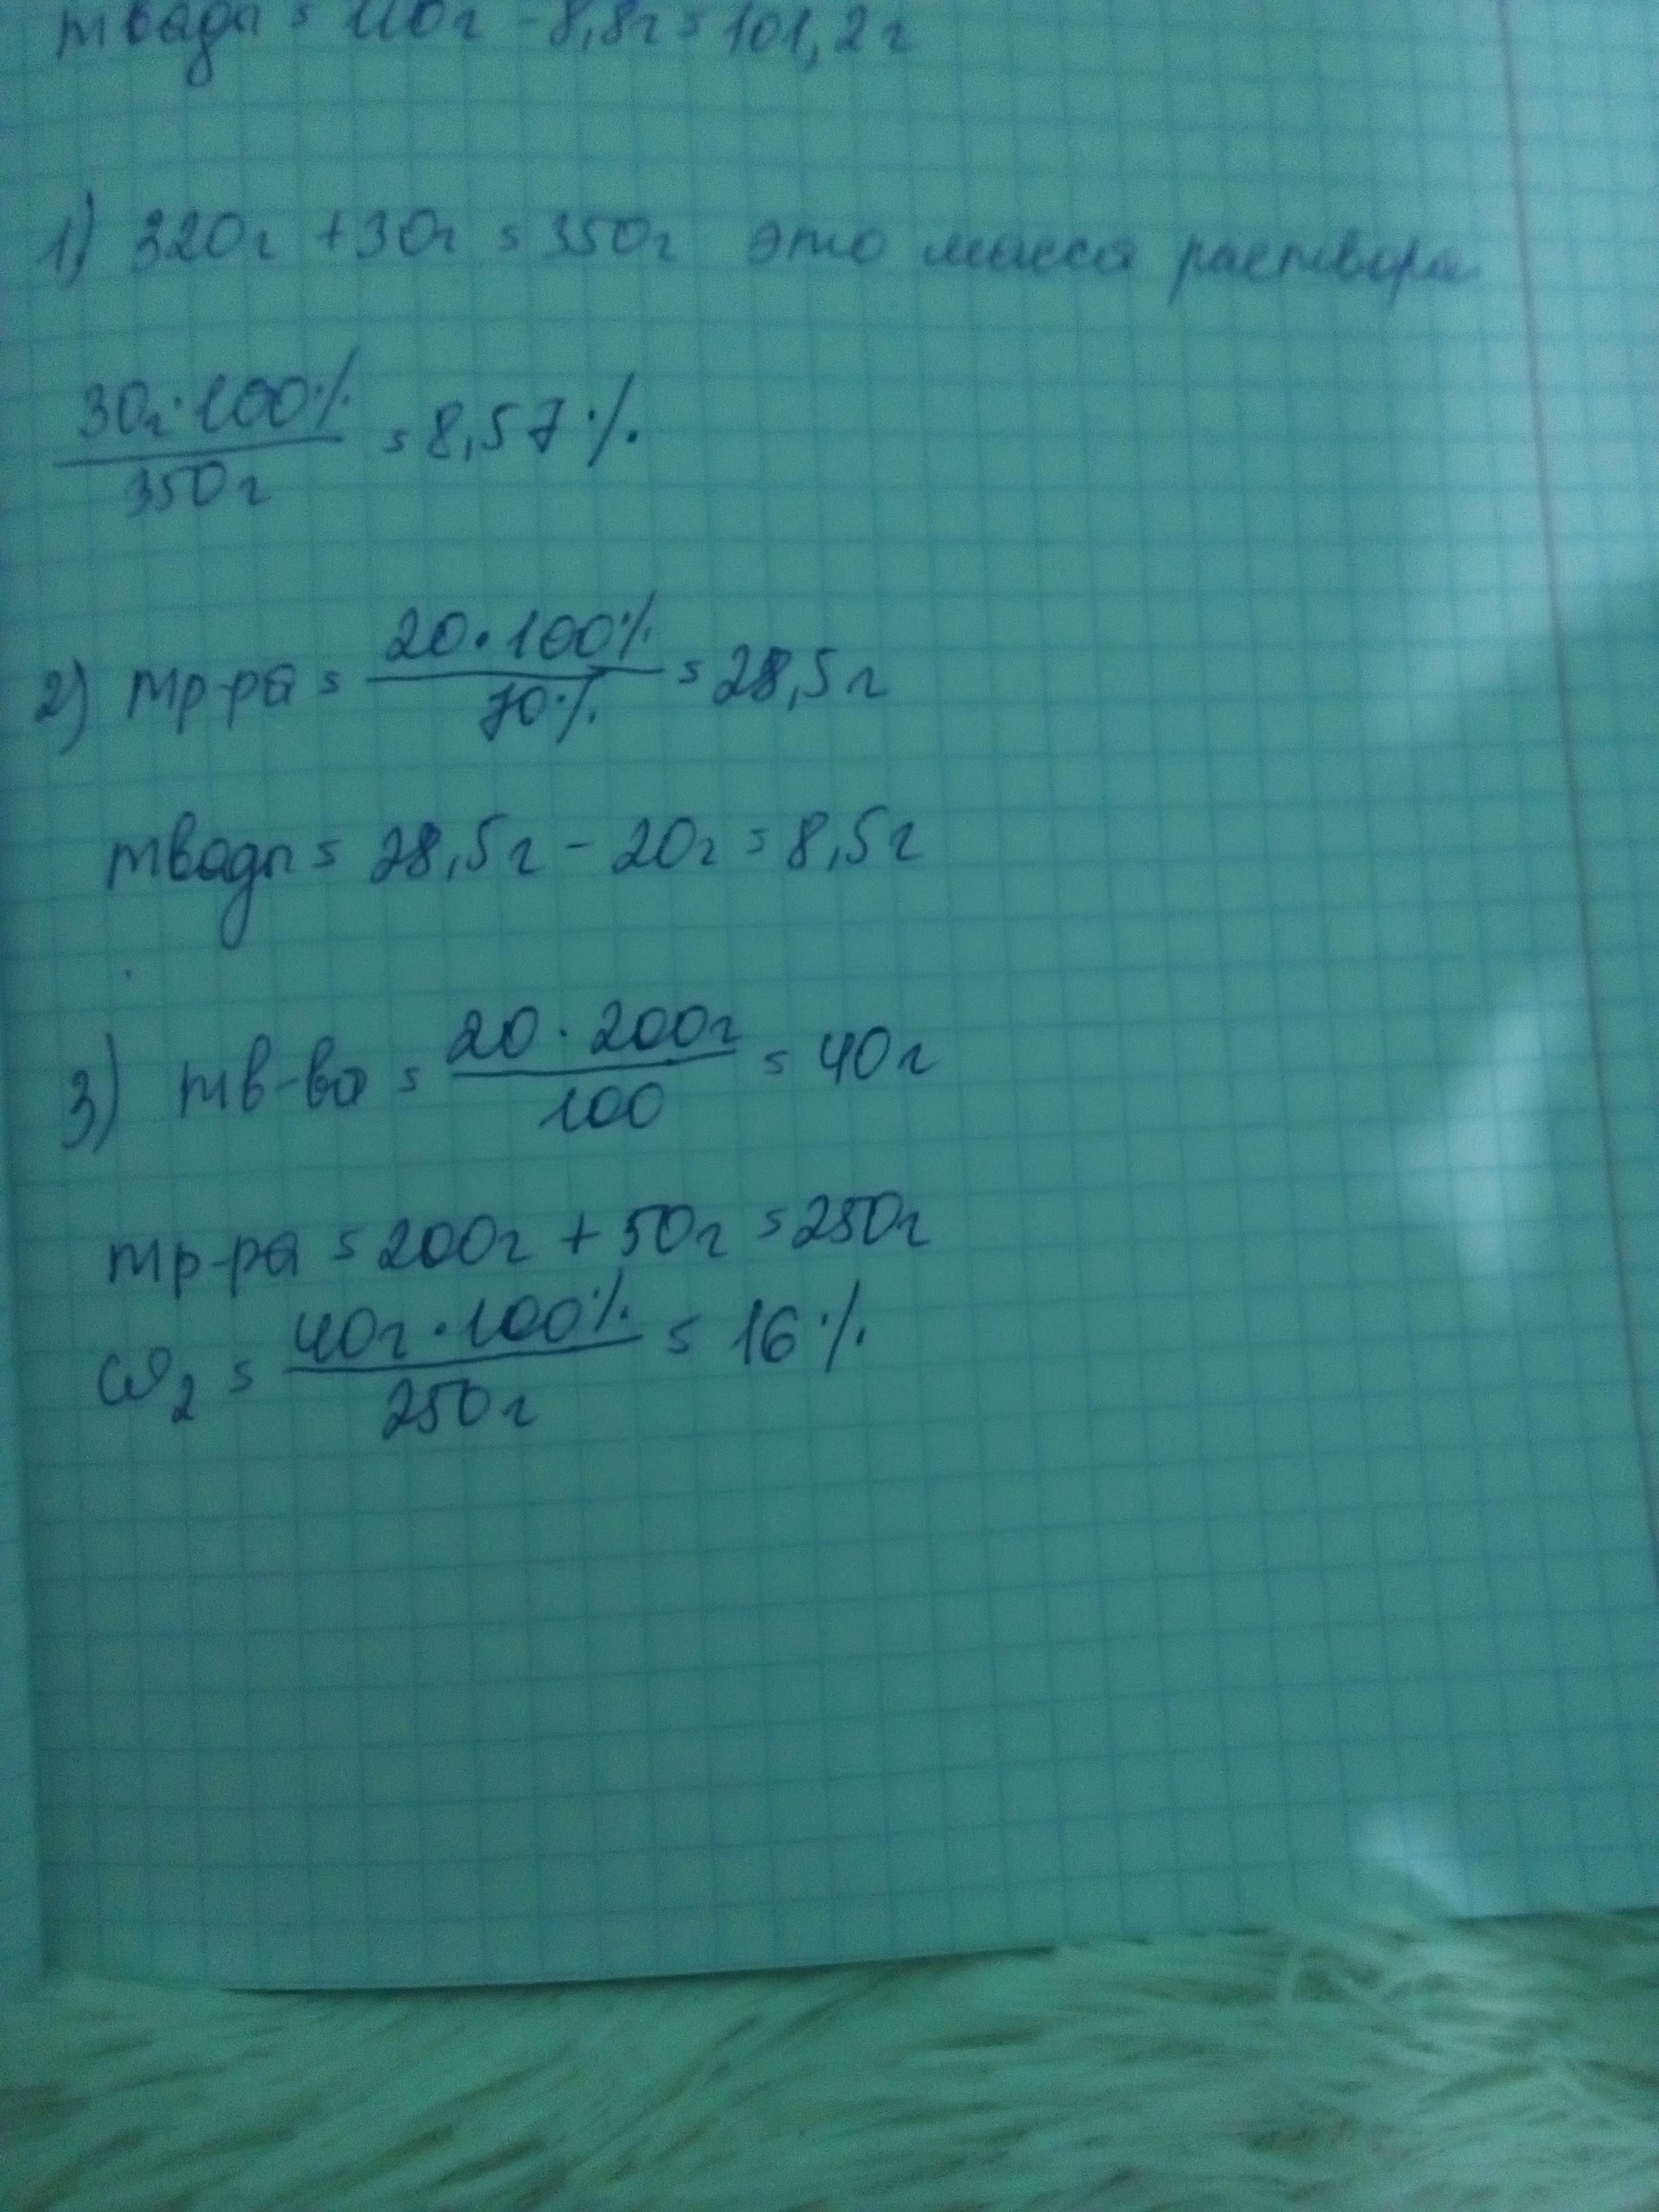 mводы = 110г - 8,8г = 101,2г
1) 320г + 30г = 350г это масса раствора
30г·100%
350г
= 8,57%
2) mр-ра = 20·100% = 28,5г
70%
mводы = 28,5г - 20г = 8,5г
3) mв-ва = 20·200г = 40г
100
mр-ра = 200г + 50г = 250г
ω2 = 40г·100% = 16%
250г